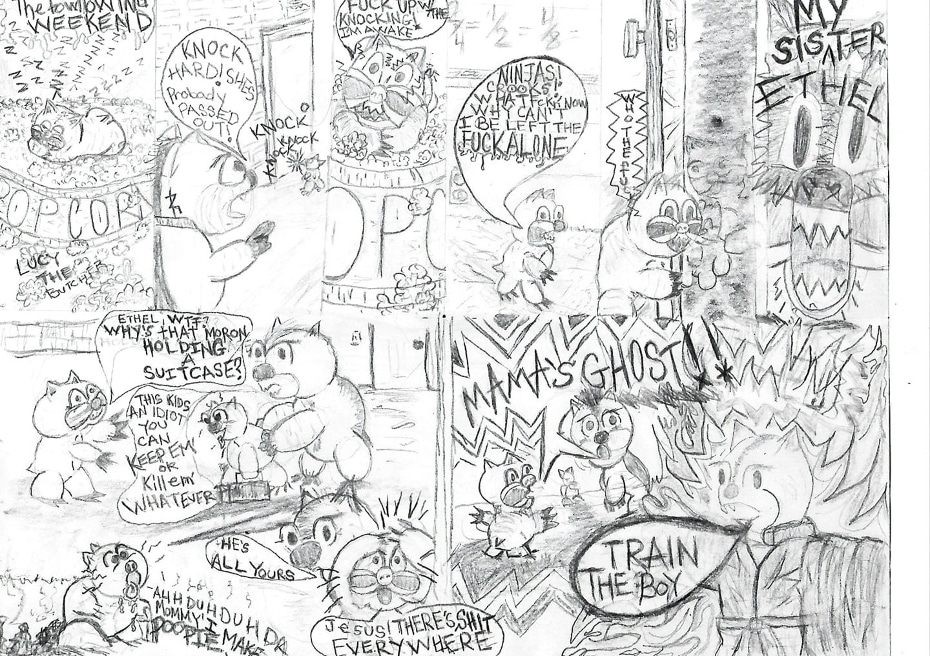 The FOLLOWING
WEEKEND
OPCOR
LUCY
THE
BUTCHER
KNOCK
HARD! SHES
Probobly
PASSED
OUT!
KNOCK
KNOCK
KNOCK
FUCK UP W/THE
KNOCKING
I'M AWAKE
OPC
NINJAS!
CROOKS!
WHAT!
NOW
WHY CAN'T
I BE LEFT THE
FUCK ALONE
WHO THE FUC
MY
SISTER
ETHEL
ETHEL, WTF?
WHY'S tHAT MORON
HOLDING
A
SUITCASE?
THIS KIDS
AN IDIOT
YOU
CAN
KEEP EM'
OR
Kill em'
WHATEVER
MAMA'S GHOST!!
TRAIN
THE BOY
HE'S
ALL YOURS
AHH DUH DUUH DA
MOMMY I
POOPIE MAKE
JESUS! THERE'S SHIT
EVERYWHERE